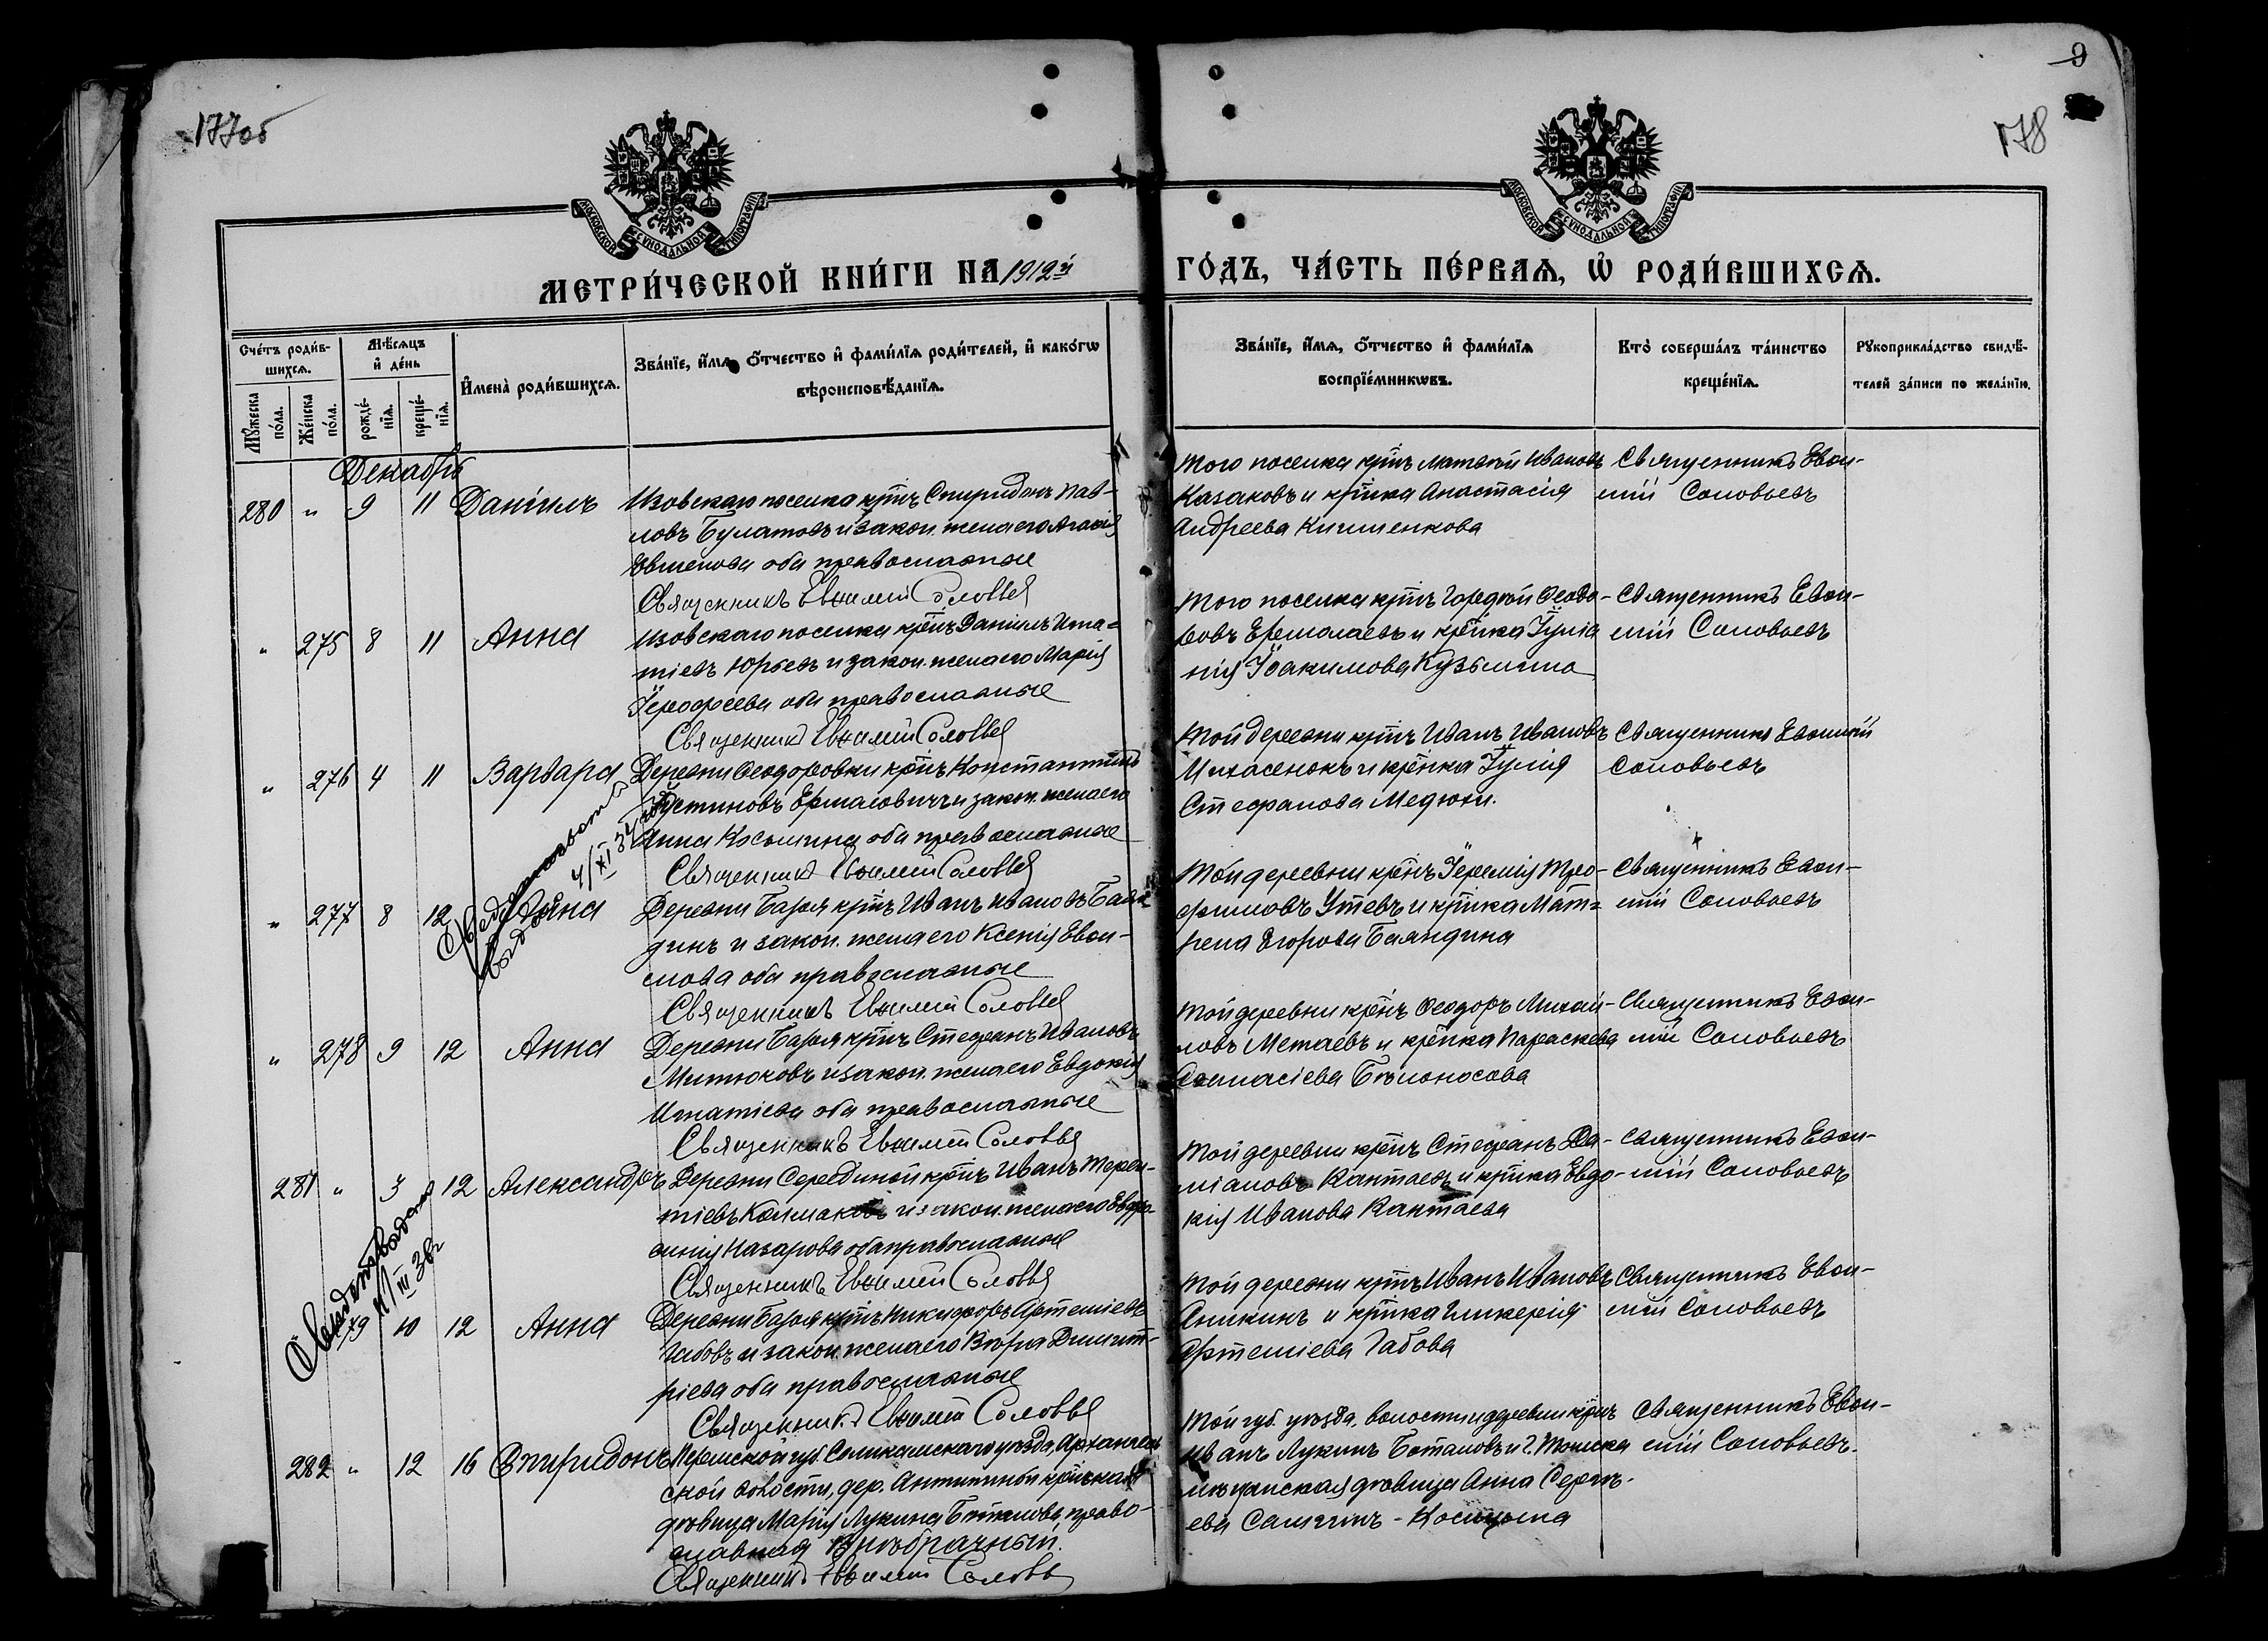 177об
178
МОСКОВСКОЙ СѴНОДАЛЬНОЙ ТИПОГРАФІИ
МОСКОВСКОЙ СѴНОДАЛЬНОЙ ТИПОГРАФІИ
МЕТРИ́ЧЕСКОЙ КНИ́ГИ НА 1912й ГО́ДЪ, ЧА́СТЬ ПЕ́РВАѦ, Ѡ҆ РОДИ́ВШИХСѦ.
Сче́тъ роди́в-
шихсѧ.
Мѣ́сѧцъ
и҆ де́нь
Мꙋ́жеска по́ла.
Же́нска по́ла.
рожде́-
нїѧ.
креще́-
нїѧ.
И҆мена̀ роди́вшихсѧ.
Зва́нїе, и҆́мѧ, ѻ҆́тчество и҆ фами́лїѧ роди́телей, и҆ како́гѡ
вѣроисповѣ́данїѧ.
Зва́нїе, и҆́мѧ, ѻ҆́тчество и҆ фами́лїѧ
воспрїе́мникѡвъ.
Кто̀ соверша́лъ та́инство
креще́нїѧ.
Рꙋкоприкла́дство свидѣ́-
телей за́писи по жела́нїю.
Декабрь
280 " 9 11 Данiилъ
Изовскаго поселка крнъ Спиридонъ Пав-
ловъ Булатовъ и закон. жена его Агаѳiя
Евменова оба православные
Священникъ Евѳимiй Соловьев
Того поселка крнъ Матѳей Ивановъ
Казаковъ и крнка Анастасiя
Андреева Кишенкова
Священникъ Евѳи-
мiй Соловьевъ
" 275 8 11 Анна
Изовскаго поселка крнъ Данiилъ Игна-
тiевъ Юрьевъ и закон. жена его Марiя
Iероѳеева оба православные
Священникъ Евѳимiй Соловьев
Того поселка крнъ Гордiй Ѳеодо-
ровъ Ермолаевъ и крнка Iулiа
нiя Iоакимова Кузьмина
Священникъ Евѳи-
мiй Соловьевъ
" 276 4 11 Варвара
Деревни Ѳеодоровки крнъ Константинъ
Устиновъ Ермаговичъ и закон. жена его
Анна Косьмина оба православные
Священникъ Евѳимiй Соловьев
Той деревни крнъ Иванъ Ивановъ
Михасенокъ и крнка Iулiя
Стефанова Медюхи.
Священникъ Евѳимiй
Соловьевъ
" 277 8 12 Анна
4/XI 34
Деревни Базоя крнъ Иванъ Ивановъ Балан-
динъ и закон. жена его Ксенiя Евѳи-
мова оба православные
Священникъ Евѳимiй Соловьев
Той деревни крнъ Iеремiя Тро-
фимовъ Утевъ и крнка Мат-
рена Егорова Баландина
Священникъ Евѳи-
мiй Соловьевъ
" 278 9 12 Анна
Деревни Базоя крнъ Стефанъ Ивановъ
Митюковъ и закон. жена его Евдокiя
Игнатiева оба православные
Священникъ Евѳимiй Соловьев
Той деревни крнъ Ѳеодоръ Михай-
ловъ Метаевъ и крнка Параскева
Аѳанасiева Бѣлоносова
Священникъ Евѳи-
мiй Соловьевъ
281 " 3 12 Александръ
Деревни Серединой крнъ Иванъ Терен-
тiевъ Колмаковъ и закон. жена его Евфро
синiя Назарова оба православные
Священникъ Евѳимiй Соловьев
Той деревни крнъ Стефанъ Да-
мiановъ Кантаевъ и крнка Евдо-
кiя Иванова Кантаева
Священникъ Евѳи-
мiй Соловьевъ
" 279 10 12 Анна
III 38г
Деревни Базоя крнъ Никифоръ Артемiевъ
Габовъ и закон. жена его Вѣра Димит-
рiева оба православные
Священникъ Евѳимiй Соловьев
Той деревни крнъ Иванъ Ивановъ
Аникинъ и крнка Гликерiя
Артемiева Габова
Священникъ Евѳи-
мiй Соловьевъ
282 " 12 16 Спиридонъ
Пермской губ. Соликамскаго уѣзда, Архангель
ской волости, дер. Антипиной крнская
дѣвица Марiя Лукина Боталова, право-
славная внѣбрачный.
Священникъ Евѳимiй Соловьев
Той губ. уѣзда, волости и деревни крнъ
Иванъ Лукинъ Боталовъ и г. Томска
мѣщанская дѣвица Анна Сергѣ-
ева
Священникъ Евѳи-
мiй Соловьевъ.